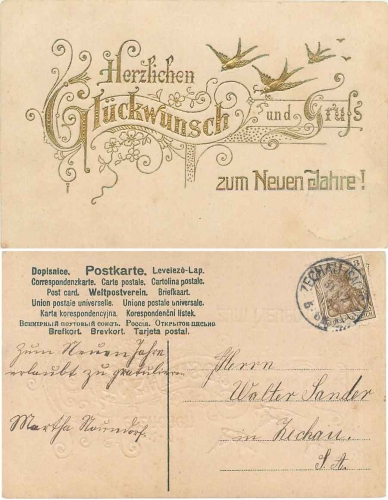 Herzlichen
Glückwunsch und Gruß
zum Neuen Jahre!
Dopisnice. Postkarte. Levelező-Lap.
Correspondenzkarte. Carte postale. Cartolina postale.
Post card. Weltpostverein. Briefkaart.
Union postale universelle. Unione postale universale.
Karta korespondencyjna. Korespondenční lístek.
Всемирный почтовый союзъ. Россія. Открытое письмо
Brefkort. Brevkort. Tarjeta postal.
ZECHAU
Zum Neuen Jahre
erlaubt zu gratulieren
Martha
Herrn
Walter Sander
in Zechau.
S. A.